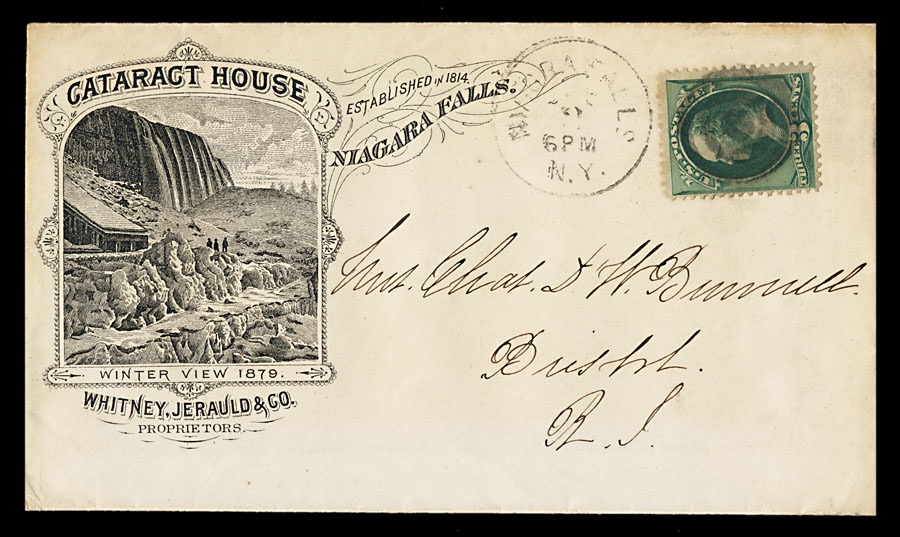 CATARACT HOUSE
ESTABLISHED IN 1814.
NIAGARA FALLS.
WINTER VIEW 1879.
WHITNEY, JERAULD & CO.
PROPRIETORS.
NIAGARA FALLS
6 PM
N.Y.
U.S. POSTAGE
3
Chas. D W. Bunnell.
Bristol.
R.I.